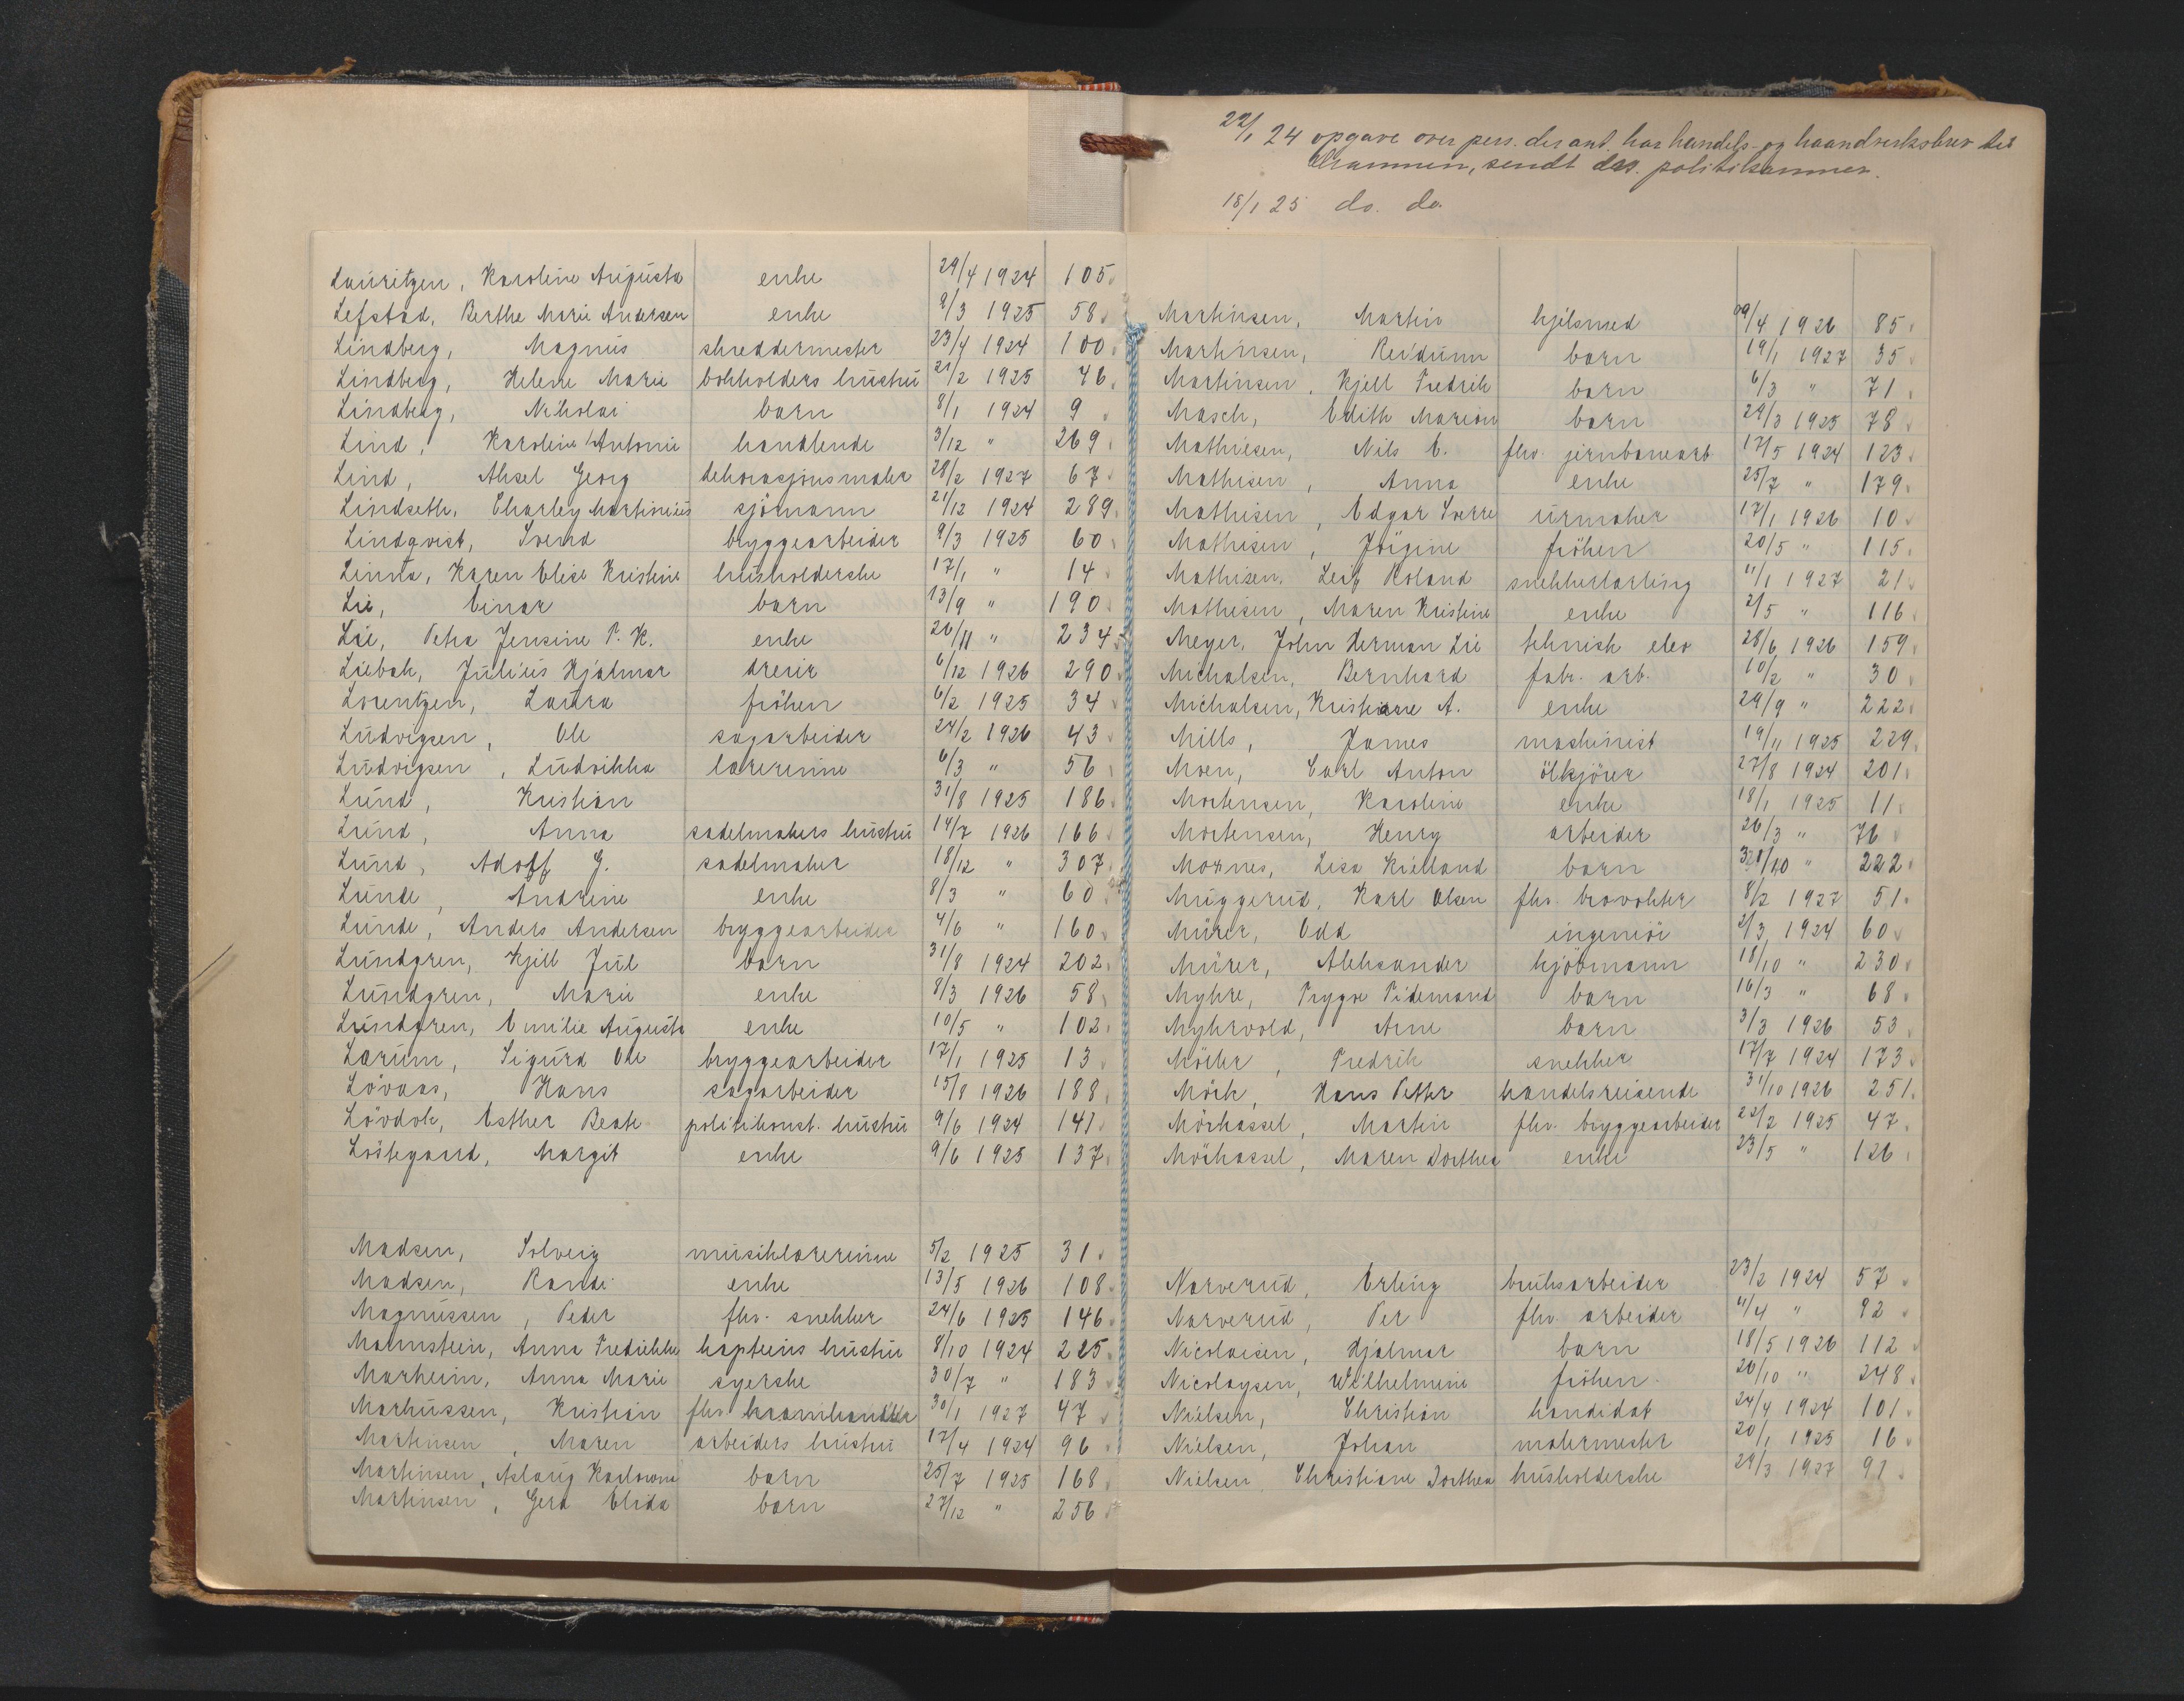 Lauritzen, Karoline Augusta enke 29/4 1924 105
Lefstad, Berthe Marie Andersen enke 9/3 1925 58
Lindberg, Magnus skreddermester 23/4 1924 100
Lindberg, Helene Marie bokholders hustru 21/2 1925 46
Lindberg, Nikolai barn 8/1 1924 9
Lind, Karoline Antonie handlende 3/12 " 269
Lind, Aksel Georg dekorasjonsmaler 28/2 1927 67
Lindseth, Charley Martinius sjömann 21/12 1924 289
Lindqvist, Svend bryggearbeider 9/3 1925 60
Linna, Karen Elise Kristine husholderske 17/1 " 14
Lie, Einar barn 13/9 " 190
Lie, Petra Jensine P. K. enke 26/11 " 234
Liebak, Julius Hjalmar dreier 6/12 1926 290
Lorentzen, Laura fröken 6/2 1925 34
Ludvigsen, Ole sagarbeider 24/2 1926 43
Ludvigsen, Ludvikka lærerinne 6/3 " 56
Lund, Kristian 31/8 1925 186
Lund, Anna sadelmakers hustru 14/7 1926 166
Lund, Adolf G. sadelmaker 18/12 " 307
Lunde, Andrine enke 8/3 " 60
Lunde, Anders Andersen bryggearbeider 4/6 " 160
Lundgren, Kjell Jul barn 31/8 1924 202
Lundgren, Marie enke 8/3 1926 58
Lundgren, Emilie Augusta enke 10/5 " 102
Larum, Sigurd Ole bryggearbeider 17/1 1925 13
Lövaas, Hans sagarbeider 15/8 1926 188
Lövdok, Esther Beate politikonst. hustru 9/6 1924 141
Löstegaard, Margit enke 9/6 1925 137
Madsen, Solveig musiklærerinne 5/2 1925 31
Madsen, Randi enke 13/5 1926 108
Magnussen, Peder fhv. snekker 24/6 1925 146
Malmstein, Anna Fredrikke kapteins hustru 8/10 1924 225
Marheim, Anna Marie syerske 30/7 " 183
Markussen, Kristian fhv. kramhandler 30/1 1927 47
Martinsen, Maren arbeiders hustru 17/4 1924 96
Martinsen, Aslaug Karlowna barn 25/7 1925 168
Martinsen, Gerd Elida barn 27/12 " 256
22/1 24 opgave over pers. der ant. har handels- og haandverksbrev til
Drammen, sendt drs. politikammer.
18/1 25 do. do.
Martinsen, Martin hjulsmed 29/4 1926 85
Martinsen, Reidunn barn 19/1 1927 35
Martinsen, Kjell Fredrik barn 6/3 " 71
Masch, Edith Marion barn 29/3 1925 78
Mathiesen, Nils E. fhv. jernbanearb 17/5 1924 123
Mathisen, Anna enke 25/7 " 179
Mathisen, Edgar Sverre urmaker 17/1 1926 10
Mathisen, Jörgine fröken 20/5 " 115
Mathisen, Leif Roland snekkerlærling 11/1 1927 21
Mathisen, Maren Kristine enke 2/5 " 116
Meyer, John Herman Lie teknisk elev 28/6 1926 159
Michalsen, Bernhard fabr. arb. 10/2 " 30
Michalsen, Kristiane A. enke 29/9 " 222
Mills, James maskinist 19/11 1925 229
Moen, Carl Anton ölkjörer 27/8 1924 201
Mortensen, Karoline enke 18/1 1925 11
Mortensen, Henry arbeider 26/3 " 76
Moxnes, Lisa Kielland barn 28/10 " 222
Muggerud, Karl Olsen fhv. brovokter 8/2 1927 51
Mürer, Odd ingeniör 2/3 1924 60
Mürer, Aleksander kjöbmann 18/10 " 230
Myhre, Trygve Tidemand barn 16/3 " 68
Myhrvold, Arne barn 3/3 1926 53
Möller, Fredrik snekker 17/7 1924 173
Mörk, Hans Petter handelsreisende 31/10 1926 251
Mörkassel, Martin fhv. bryggearbeider 22/2 1925 47
Mörkassel, Maren Dorthea enke 23/5 " 126
Narverud, Erling bruksarbeider 23/2 1924 57
Narverud, Per fhv. arbeider 11/4 " 92
Nicolaisen, Hjalmar barn 18/5 1926 112
Nicolaysen, Wilhelmine fröken 26/10 " 248
Nielsen, Christian kandidat 24/4 1924 101
Nielsen, Johan malermester 20/1 1925 16
Nielsen Christiane Dorthea husholderske 29/3 1927 91